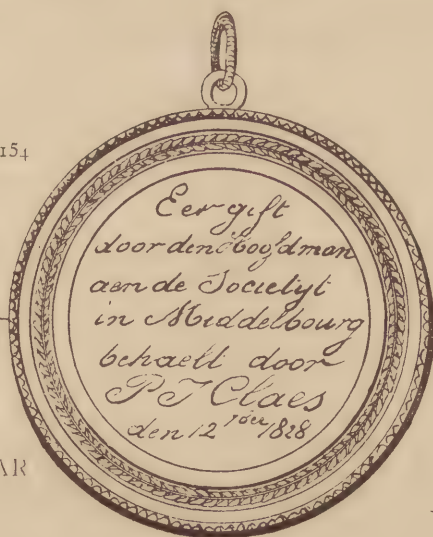 154
Eergift
door den Hoofdman
aen de Societijt
in Middelbourg
behaelt door
P J Claes
den 12 7bre 1828
AR